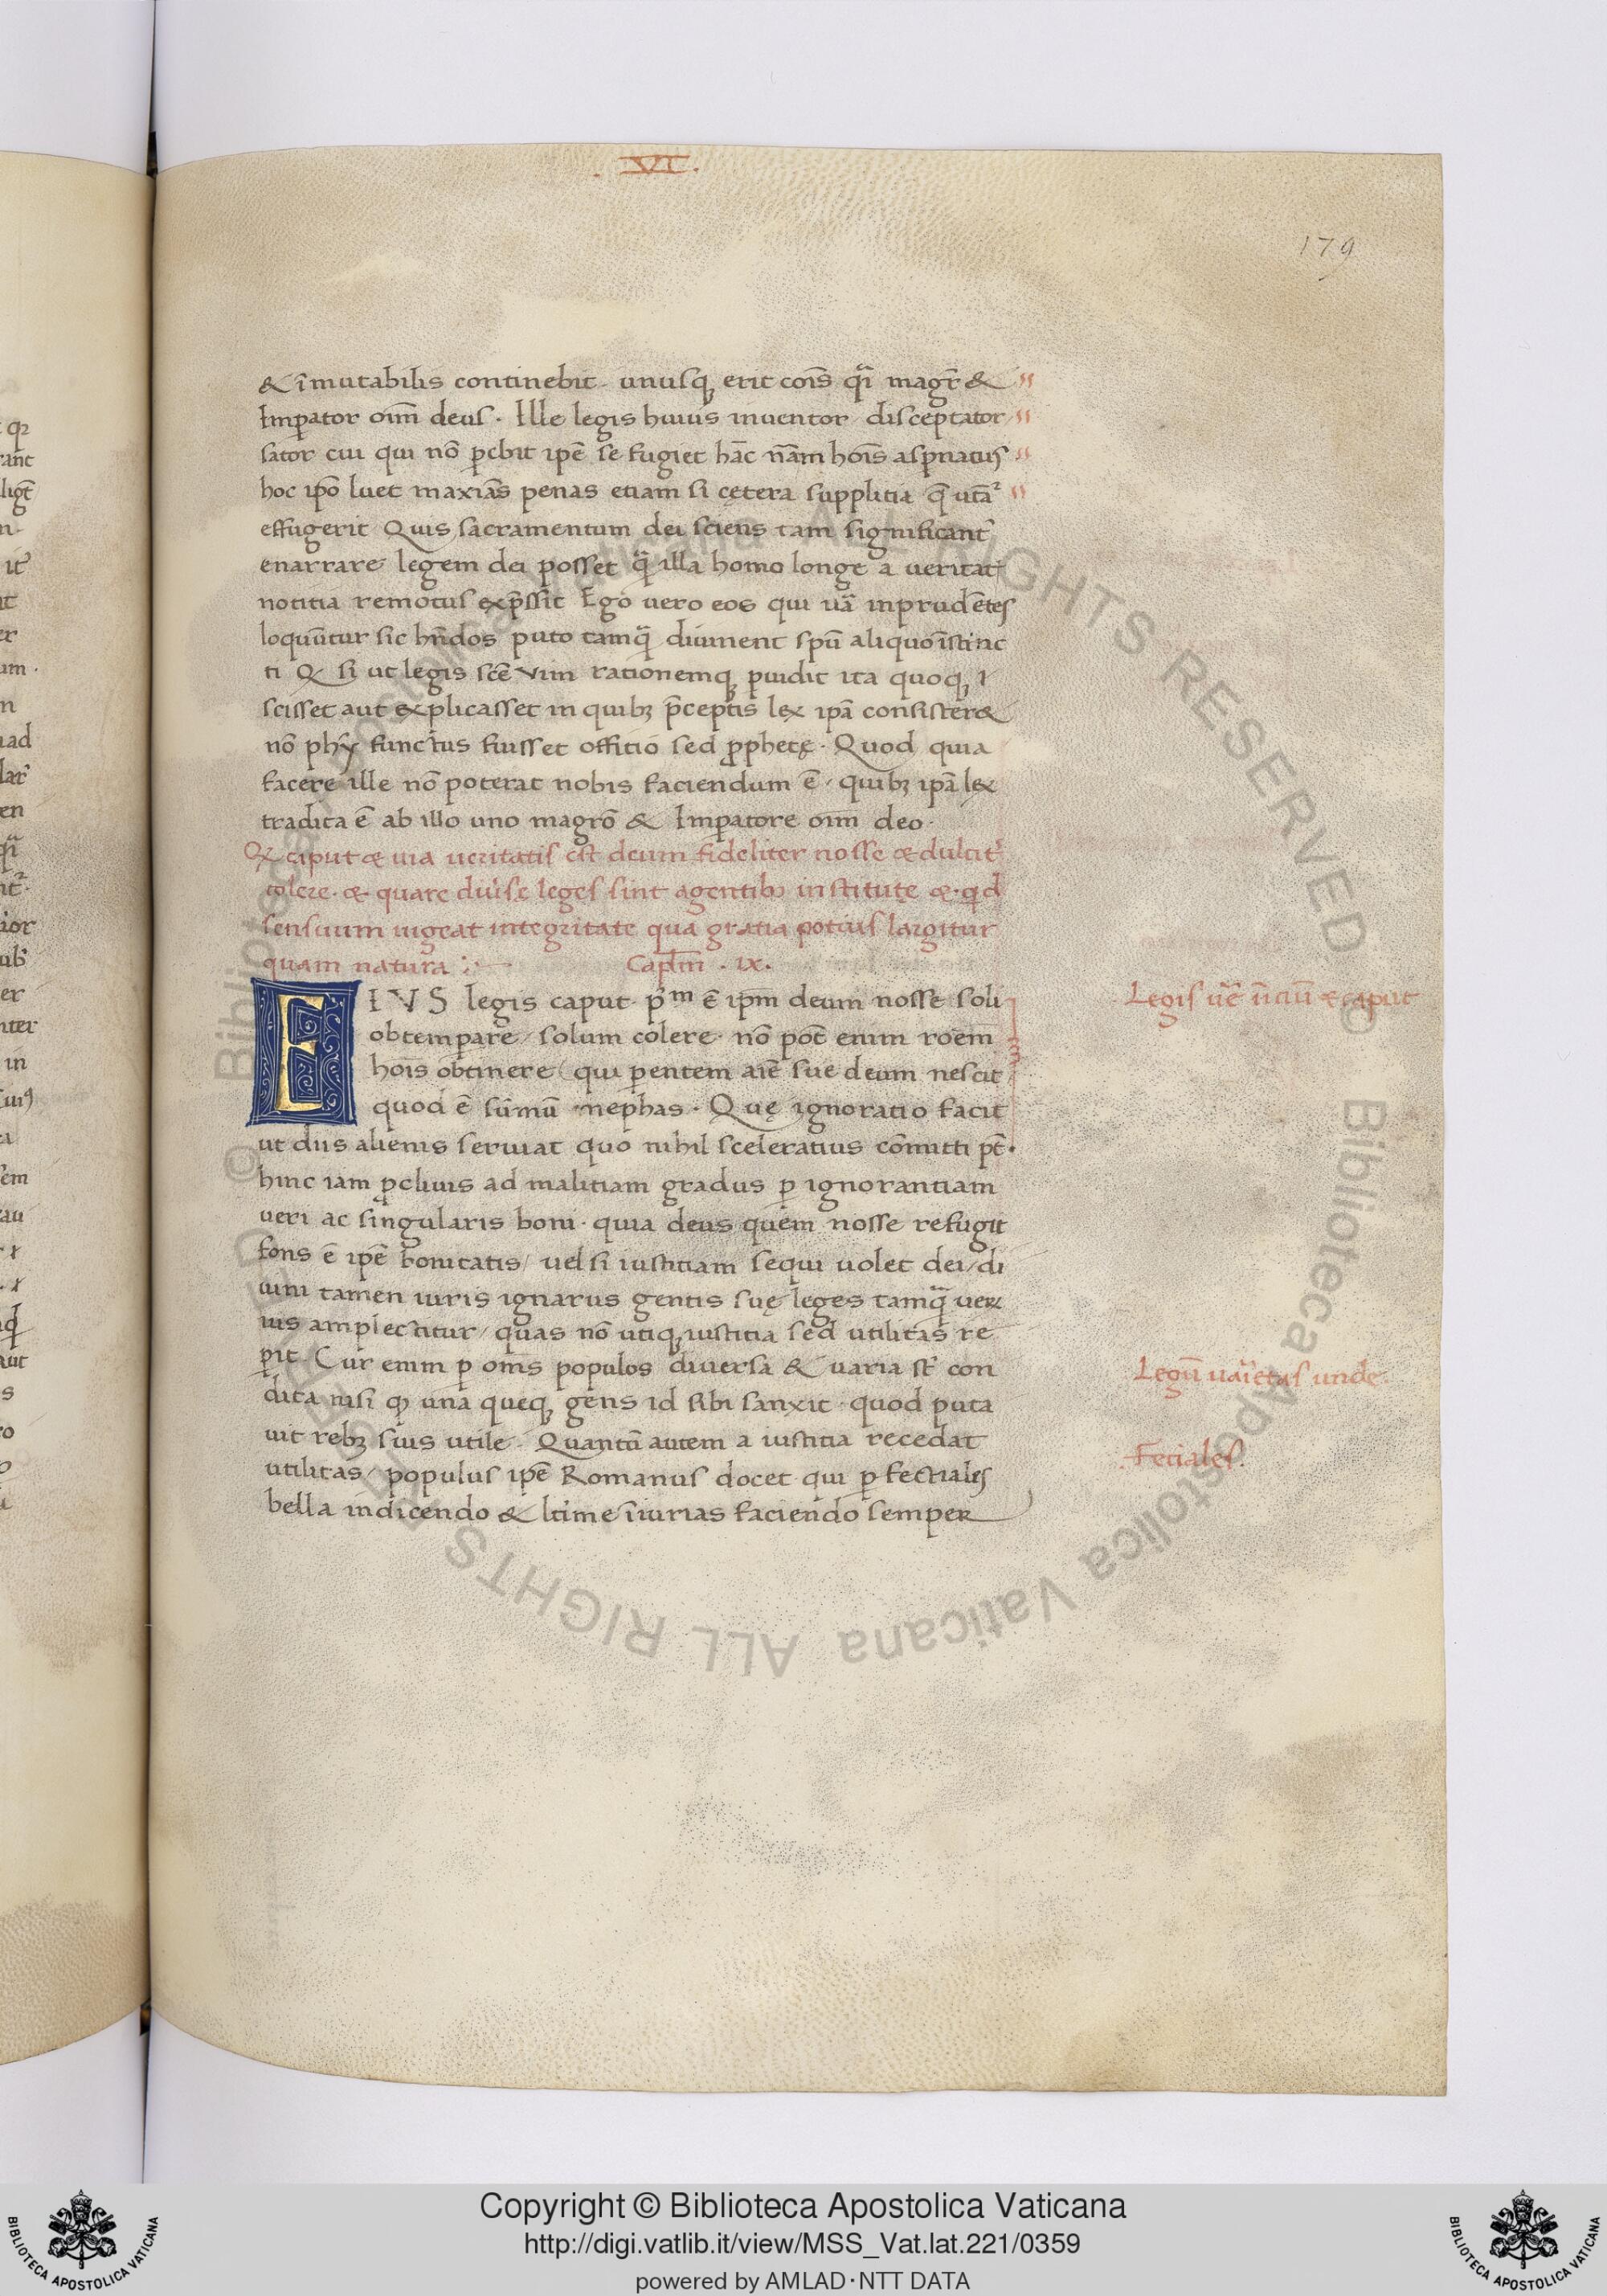 .VI.
179
& ĩmutabilis continebit. unusq; erit cõis q̃i magr̃ &
Imꝑator oĩm deus. Ille legis huius inuentor disceptator
lator cui qui nõ ꝑebit ipẽ se fugiet hãc nãm hoĩs asp̃natus
hoc ipõ luet maxiãs penas etiam si cętera supplitia q̃ utãr
effugerit Quis sacramentum dei sciens tam significant̃
enarrare legem dei posset q̃ illa homo longe a veritat̃
notitia remotus exp̃ssit Ego uero eos qui uã inprudẽtes
loquũtur sic hñdos puto tamq̃ diuinent spũ aliquo ĩstinc
ti Q si ut legis scẽ vim rationemq; puidit ita quoq; ı
scisset aut explicasset in quibꝫ p̃ceptis lex ipã consisteret
nõ phỹ functus fuisset offitio sed ꝓphetę. Quod quia
facere ille nõ poterat nobis faciendum ẽ. quibꝫ ipã lex
tradita ẽ ab illo uno magrõ & Imꝑatore oĩm deo.
Q caput & uia ueritatis est deum fideliter nosse & dulcit̃
colere. & quare diũse leges sint agentibꝫ institutę &. qd
sensuum uigeat integritate qua gratia potius largitur
quam natura Capl̃m . IX.
EIVS legis caput pᵐ ẽ ipm̃ deum nosse soli
obtemꝑare solum colere. nõ põt enim rõem
hoĩs obtinere qui ꝑentem aĩe sue deum nescit
quod ẽ sũmũ nephas. Quę ignoratio facit
ut diis alienis seruiat quo nihil sceleratius cõmitti pt̃.
hinc iam ꝓcliuis ad malitiam gradus ꝑ ignorantiam
ueri ac singularis boni. quia deus quem nosse refugit
fons ẽ ipẽ bonitatis/ uel si iustitiam sequi uolet dei/ di
uini tamen iuris ignarus gentis suę leges tamq̃ ueꝝ
ius amplectitur/ quas nõ utiq; iustitia sed utilitas re
ꝑit. Cur enim ꝑ om̃s populos diuersa & uaria st̃ con
dita nisi ꝙ una queq; gens id sibi sanxit. quod puta
uit rebꝫ suis utile. Quantũ autem a iustitia recedat
utilitas/ populus ipẽ Romanus docet qui ꝑ fectiales
bella indicendo & ltime ĩiurias faciendo semper
Legis uẽ ñciũ & caput
Legũ uãietas unde
.Fetiales.
Copyright © Biblioteca Apostolica Vaticana
http://digi.vatlib.it/view/MSS_Vat.lat.221/0359
powered by AMLAD·NTT DATA
BIBLIOTECA APOSTOLICA VATICANA
BIBLIOTECA APOSTOLICA VATICANA
© Biblioteca Apostolica Vaticana ALL RIGHTS RESERVED
© Biblioteca Apostolica Vaticana ALL RIGHTS RESERVED